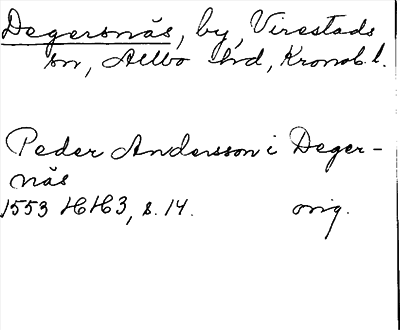 Degersnäs, by, Virestads
sn, Allbo hd, Kronob. l.
Peder Andersson i Deger-
näs
1553 HH3, s. 14. orig.